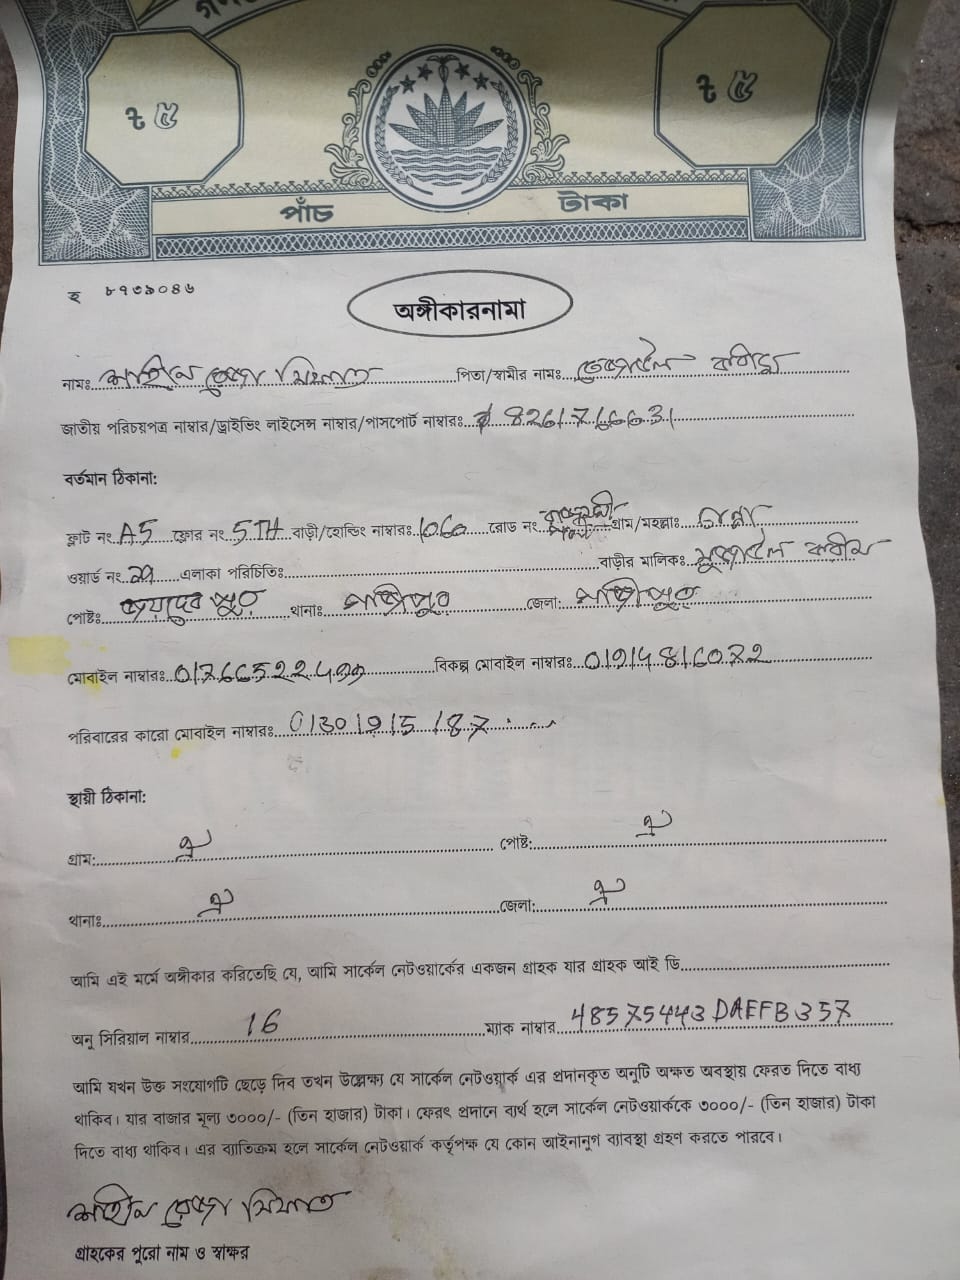 ৳ ৫ ৳ ৫
পাঁচ টাকা
হ ৮৭৩৯০৪৬
অঙ্গীকারনামা
নামঃ পিতা/স্বামীর নামঃ
জাতীয় পরিচয়পত্র নাম্বার/ড্রাইভিং লাইসেন্স নাম্বার/পাসপোর্ট নাম্বারঃ 8261766631
বর্তমান ঠিকানা:
ফ্লাট নং A5 ফ্লোর নং 5TH বাড়ী/হোল্ডিং নাম্বারঃ 1060 রোড নং গ্রাম/মহল্লাঃ
ওয়ার্ড নং 29 এলাকা পরিচিতিঃ বাড়ীর মালিকঃ
পোষ্টঃ থানাঃ গাজীপুর জেলা: গাজীপুর
মোবাইল নাম্বারঃ বিকল্প মোবাইল নাম্বারঃ
পরিবারের কারো মোবাইল নাম্বারঃ 01301915187
স্থায়ী ঠিকানা:
গ্রাম: ঐ পোষ্ট: ঐ
থানাঃ ঐ জেলা: ঐ
আমি এই মর্মে অঙ্গীকার করিতেছি যে, আমি সার্কেল নেটওয়ার্কের একজন গ্রাহক যার গ্রাহক আই ডি
অনু সিরিয়াল নাম্বার 16 ম্যাক নাম্বার 48575443DAEFB357
আমি যখন উক্ত সংযোগটি ছেড়ে দিব তখন উল্লেক্ষ্য যে সার্কেল নেটওয়ার্ক এর প্রদানকৃত অনুটি অক্ষত অবস্থায় ফেরত দিতে বাধ্য
থাকিব। যার বাজার মূল্য ৩০০০/- (তিন হাজার) টাকা। ফেরৎ প্রদানে ব্যর্থ হলে সার্কেল নেটওয়ার্ককে ৩০০০/- (তিন হাজার) টাকা
দিতে বাধ্য থাকিব। এর ব্যাতিক্রম হলে সার্কেল নেটওয়ার্ক কর্তৃপক্ষ যে কোন আইনানুগ ব্যাবস্থা গ্রহণ করতে পারবে।
গ্রাহকের পুরো নাম ও স্বাক্ষর